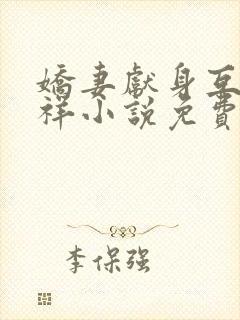 嬌妻獻身互
祥小說免費
李保強